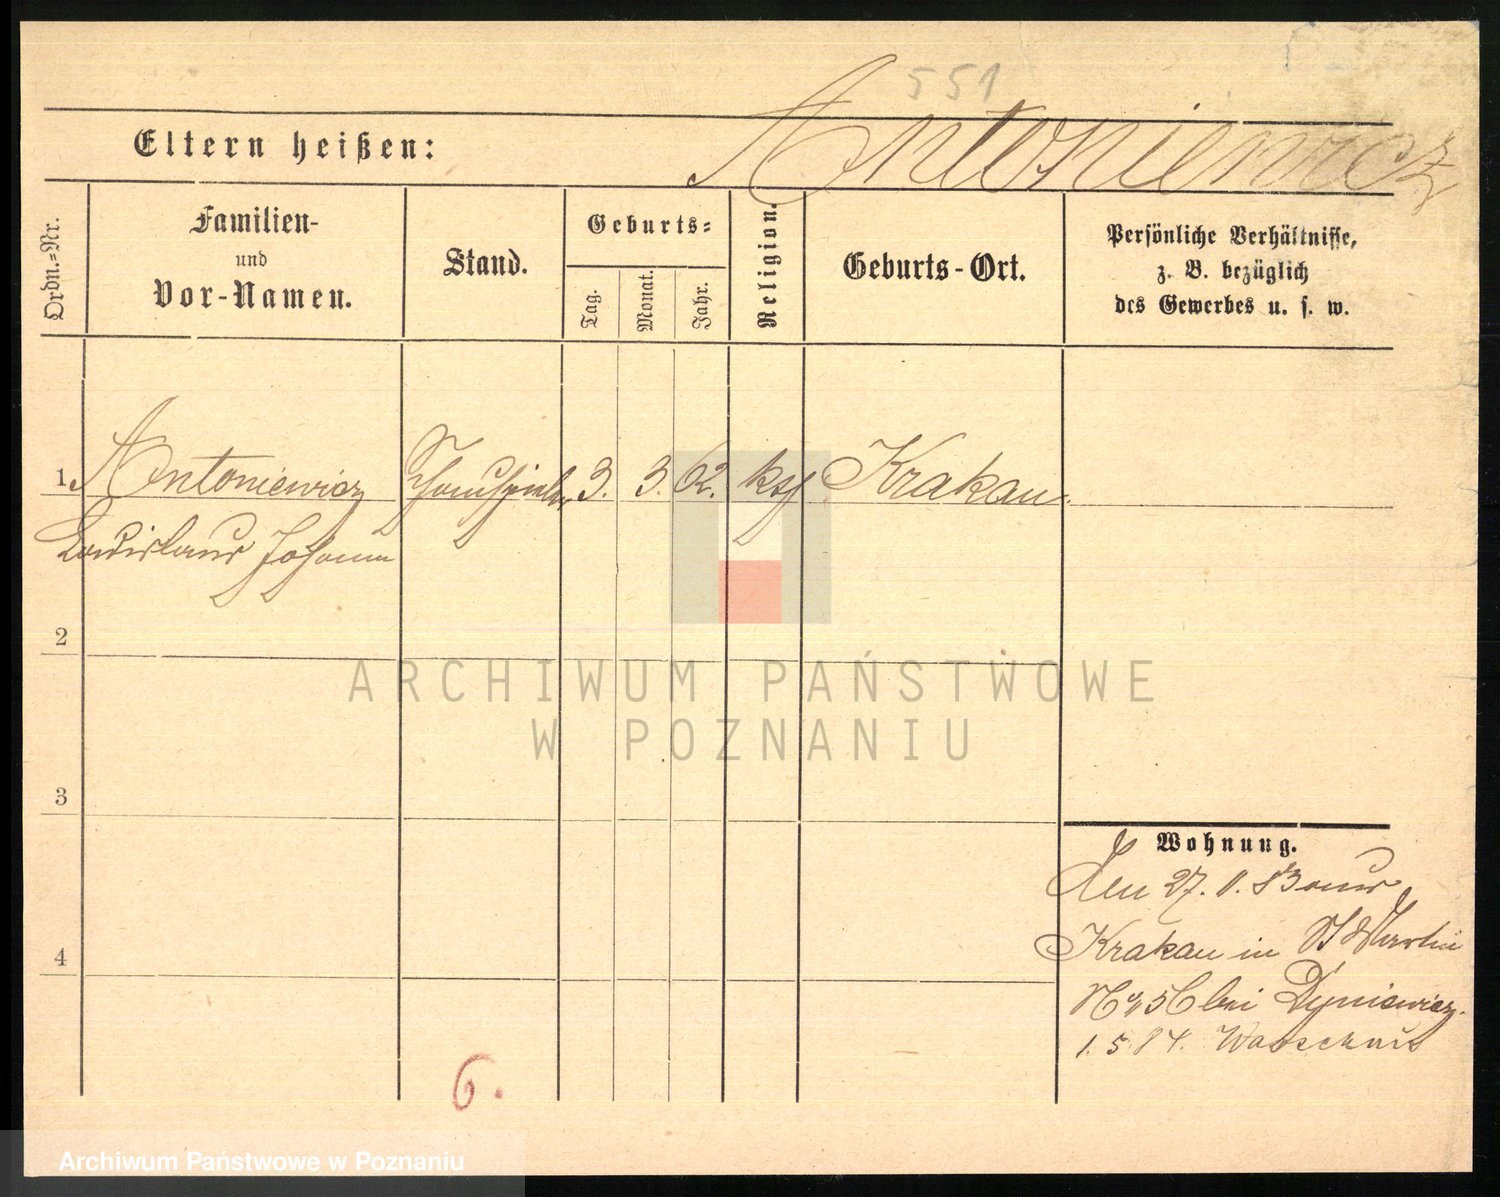 551
Eltern heißen:
Antoniewicz
Ordn.=Nr.
Familien-
und
Vor-Namen.
Stand.
Geburts=
Tag.
Monat.
Jahr.
Religion.
Geburts-Ort.
Persönliche Verhältnisse,
z. B. bezüglich
des Gewerbes u. s. w.
1. Antoniewicz Schauspieler 3. 3. 62. kath Krakau.
Ladislaus Johann
2
ARCHIWUM PAŃSTWOWE
W POZNANIU
3
4
Wohnung.
Den 27. 83 aus
Krakau in St Martin
bei Dyniewicz.
1. 5. 84. Warschau
6.
Archiwum Państwowe w Poznaniu